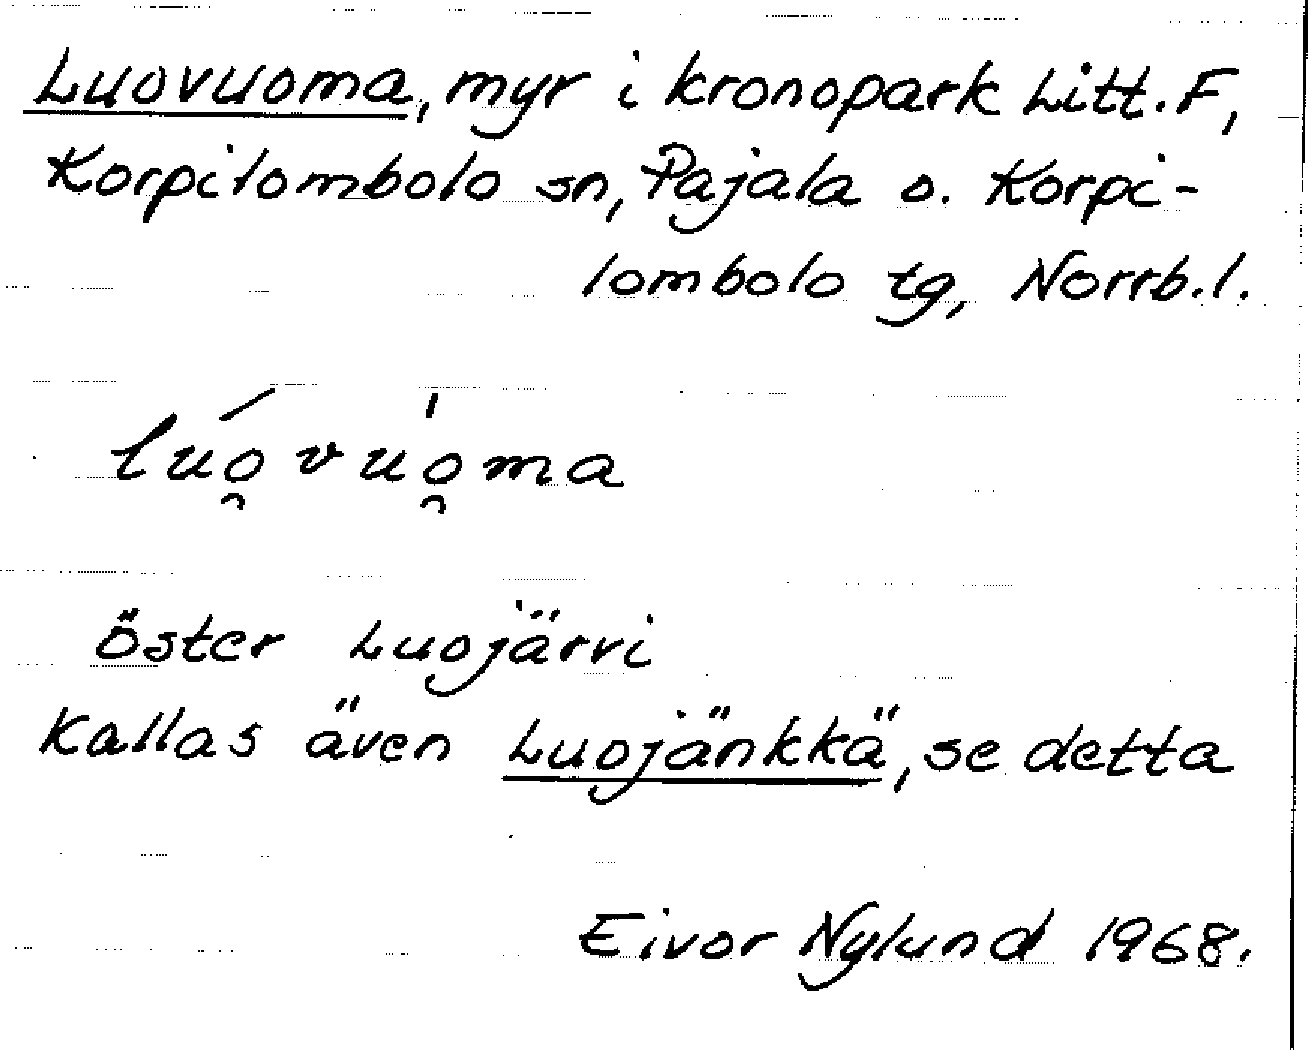 Luovuoma, myr i kronopark Litt. F,
Korpilombolo sn, Pajala o. Korpi-
lombolo tg, Norrb.l.
lúo̯vuo̯̍ma
öster Luojärvi
Kallas även Luojänkkä, se detta
Eivor Nylund 1968.